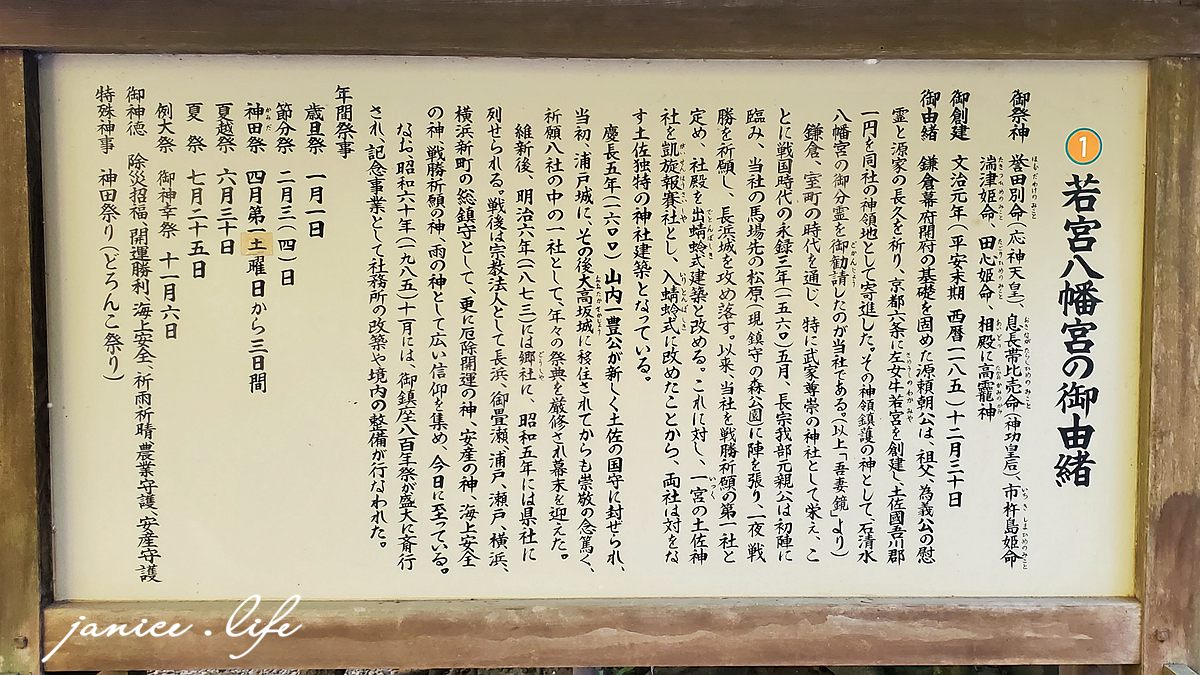 ① 若宮八幡宮の御由緒
御祭神 誉田別命(応神天皇)、息長帯比売命(神功皇后)、市杵島姫命
湍津姫命、田心姫命、相殿に高龗神
御創建 文治元年(平安末期 西暦一一八五)十二月三十日
御由緒 鎌倉幕府開府の基礎を固めた源頼朝公は、祖父、為義公の慰
霊と源家の長久を祈り、京都六条に左女牛若宮を創建し、土佐國吾川郡
一円を同社の神領地として寄進した。その神領鎮護の神として、石清水
八幡宮の御分霊を御勧請したのが当社である。(以上「吾妻鏡」より)
鎌倉、室町の時代を通じ、特に武家尊崇の神社として栄え、こ
とに戦国時代の永録三年(一五六〇)五月、長宗我部元親公は初陣に
臨み、当社の馬場先の松原(現 鎮守の森公園)に陣を張り、一夜 戦
勝を祈願し、長浜城を攻め落す。以来、当社を戦勝祈願の第一社と
定め、社殿を出蜻蛉式建築と改める。これに対し、一宮の土佐神
社を凱旋報賽社とし、入蜻蛉式に改めたことから、両社は対をな
す土佐独特の神社建築となっている。
慶長五年(一六〇〇)山内一豊公が新しく土佐の国守に封ぜられ、
当初、浦戸城に、その後大高坂城に移住されてからも崇敬の念篤く、
祈願八社の中の一社として、年々の祭典を厳修され幕末を迎えた。
維新後、明治六年(一八七三)には郷社に、昭和五年には県社に
列せられる。戦後は宗教法人として長浜、御畳瀬、浦戸、瀬戸、横浜、
横浜新町の総鎮守として、更に厄除開運の神、安産の神、海上安全
の神、戦勝祈願の神、雨の神として広い信仰を集め、今日に至っている。
なお、昭和六十年(一九八五)十一月には、御鎮座八百年祭が盛大に斎行
され、記念事業として社務所の改築や境内の整備が行なわれた。
年間祭事
歳旦祭 一月一日
節分祭 二月三(四)日
神田祭 四月第一土曜日から三日間
夏越祭 六月三十日
夏 祭 七月二十五日
例大祭 御神幸祭 十一月六日
御神徳 除災招福、開運勝利、海上安全、祈雨祈晴、農業守護、安産守護
特殊神事 神田祭り(どろんこ祭り)
janice.life